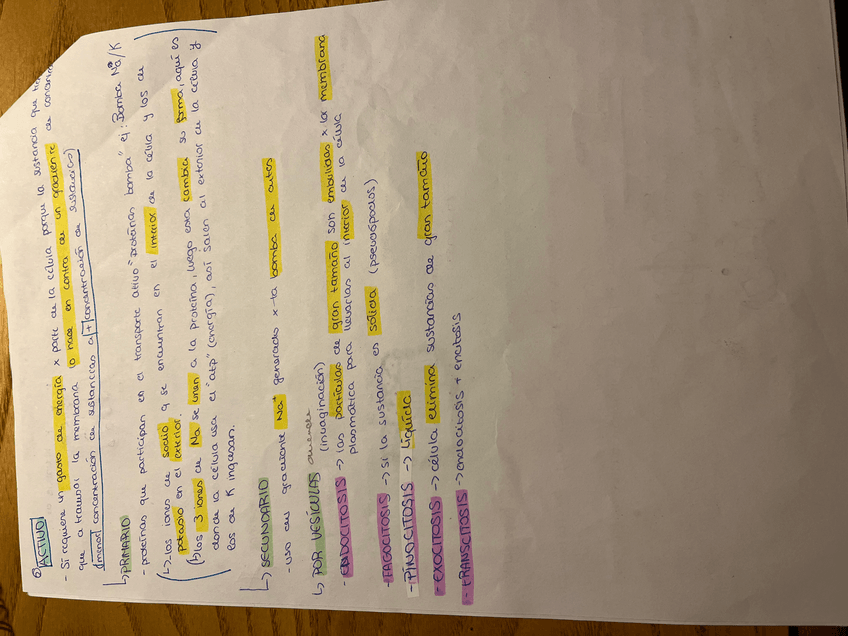 ② ACTIVO
- Sí requiere un gasto de energía x parte de la célula porque la sustancia que
que atravesar la membrana lo hace en contra de un gradiente de
(menor concentración de sustancias a + concentración de sustancias)
↳ PRIMARIO
- proteínas que participan en el transporte ativo "proteínas bomba" ej: Bomba Na/K
(↳ los iones de sodio q se encuentran en el interior de la célula y los de
potasio en el exterior.
(↳ los 3 iones de Na se unen a la proteína, luego esta cambia su forma, aquí es
donde la célula usa el "atp" (energía), así salen al exterior de la célula y
los de K ingresan.
↳ SECUNDARIO
- uso del gradiente Na+ generado x la bomba de antes
↳ POR VESÍCULAS
(invaginación)
- ENDOCITOSIS → las partículas de gran tamaño son embullidas x la membrana
plasmática para llevarlas al interior de la célula
- FAGOCITOSIS → si la sustancia es sólida (pseudópodos)
- PINOCITOSIS → líquida
- EXOCITOSIS → célula elimina sustancias de gran tamaño
- TRANSCITOSIS → endocitosis + exocitosis